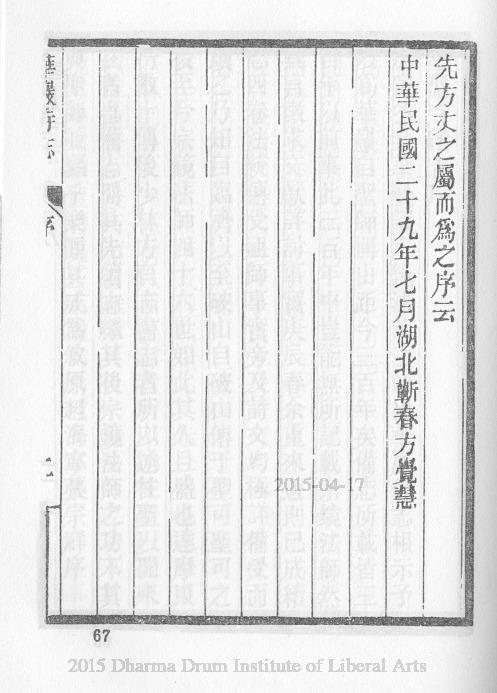 先方丈之屬而爲之序云
中華民國二十九年七月湖北蘄春方覺慧
華嚴寺志
序
二
67
2015-04-17
2015 Dharma Drum Institute of Liberal Arts